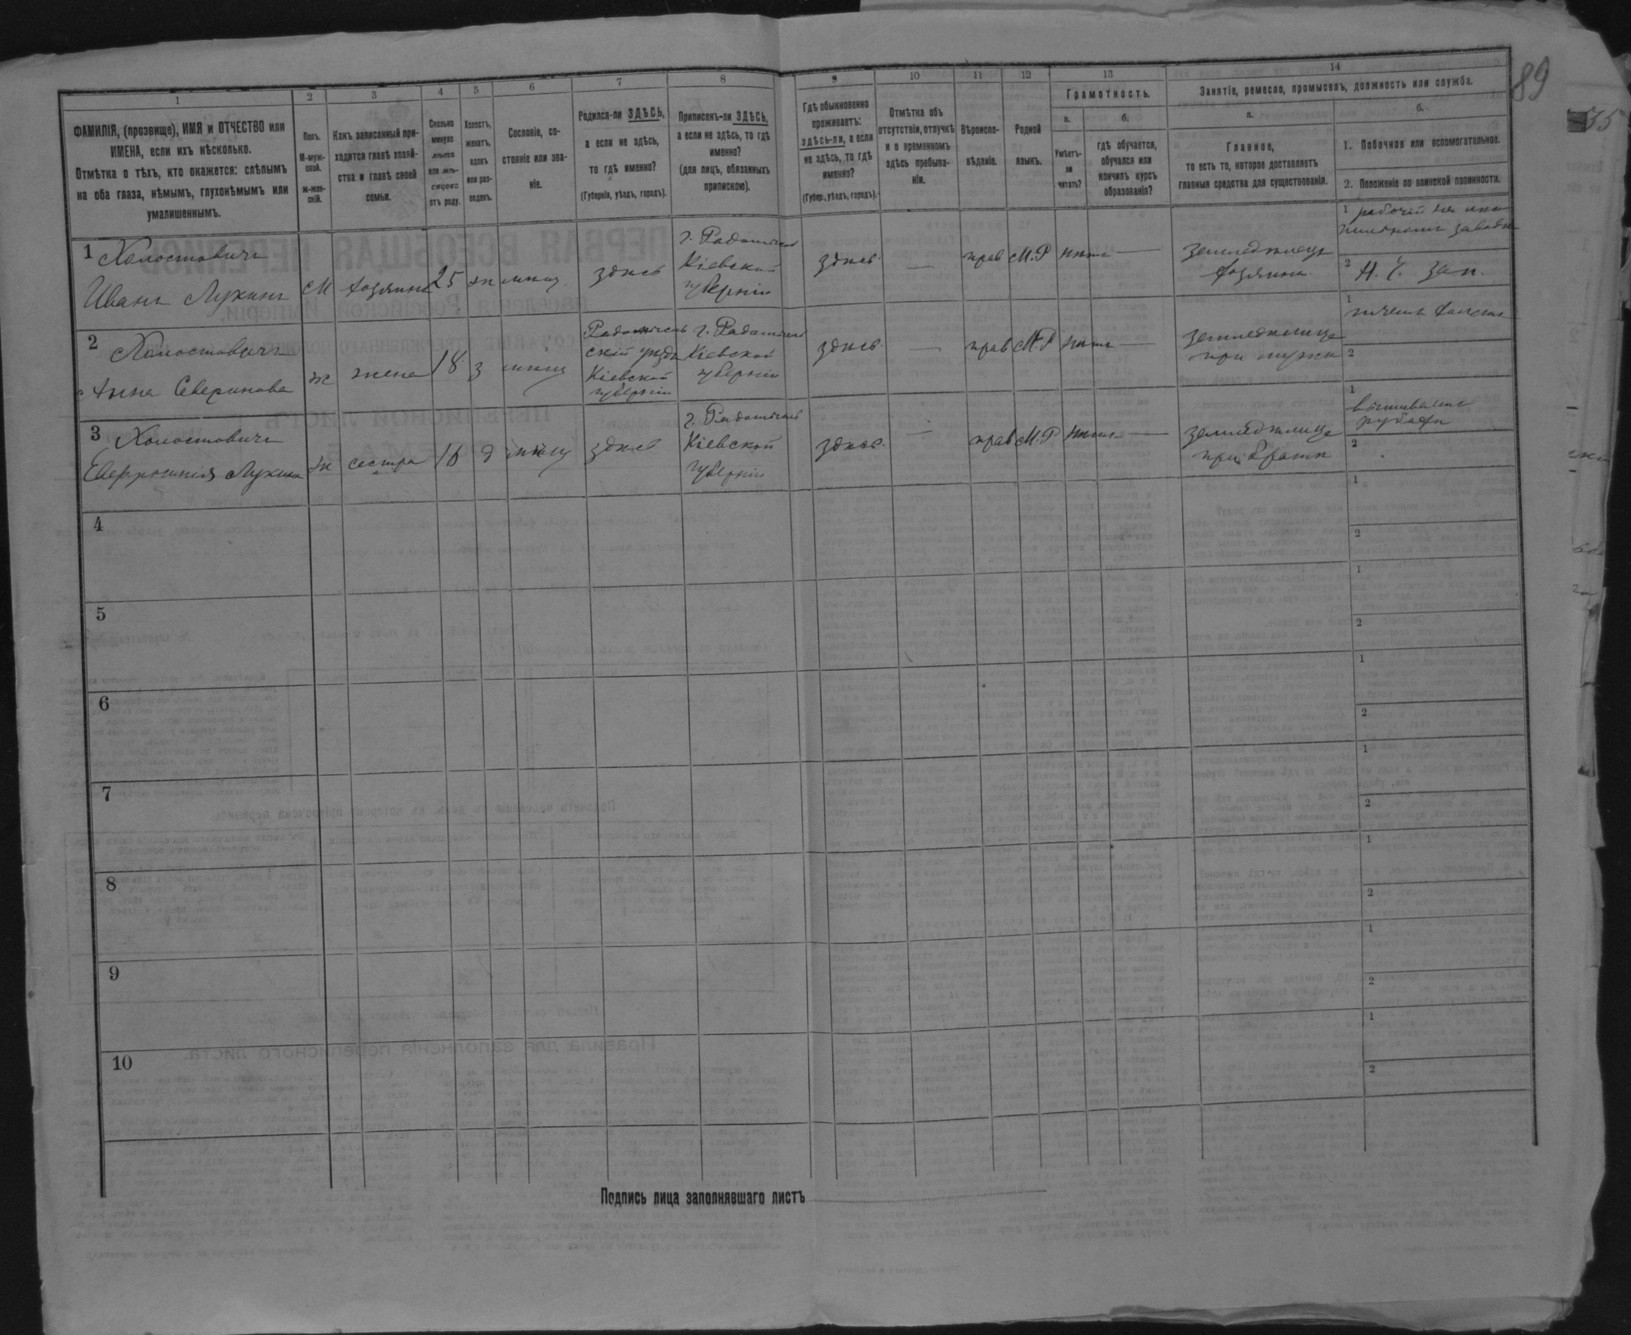 89
1 2 3 4 5 6 7 8 9 10 11 12 13 14
ФАМИЛІЯ, (прозвище), ИМЯ и ОТЧЕСТВО или
ИМЕНА, если ихъ нѣсколько.
Отмѣтка о тѣхъ, кто окажется: слѣпымъ
на оба глаза, нѣмымъ, глухонѣмымъ или
умалишеннымъ.
Полъ.
М-муж-
ской.
ж-жен-
скій.
Какъ записанный при-
ходится главѣ хозяй-
ства и главѣ своей
семьи.
Сколько
минуло
лѣтъ
или мѣ-
сяцевъ
отъ роду.
Холостъ,
женатъ,
вдовъ
или раз-
веденъ.
Сословіе, со-
стояніе или зва-
ніе.
Родился-ли ЗДѢСЬ,
а если не здѣсь,
то гдѣ именно?
(Губернія, уѣздъ, городъ).
Приписанъ-ли ЗДѢСЬ,
а если не здѣсь, то гдѣ
именно?
(для лицъ, обязанныхъ
припискою).
Гдѣ обыкновенно
проживаетъ:
здѣсь-ли, а если
не здѣсь, то гдѣ
именно?
(Губер., уѣздъ, городъ).
Отмѣтка объ
отсутствіи, отлучкѣ
и о временномъ
здѣсь пребыва-
ніи.
Вѣроиспо-
вѣданіе.
Родной
языкъ.
Грамотность.
а.
Умѣетъ-
ли
читать?
б.
гдѣ обучается,
обучался или
кончилъ курсъ
образованія?
Занятіе, ремесло, промыселъ, должность или служба.
а.
Главное,
то есть то, которое доставляетъ
главныя средства для существованія.
б.
1. Побочное или вспомогательное.
2. Положеніе по воинской повинности.
1 Холостовичъ
Иванъ Лукинъ
М хозяинъ 25 ж мѣщ. здѣсь
Кіевской
губерніи
здѣсь — прав М.Р нѣтъ —
земледѣлецъ
хозяинъ
1 рабочій на
заводѣ
2 Н. Ч. зап.
2 Холостовичъ
Анна Северинова
ж жена 18 з мѣщ
Кіевской
губерніи
Кіевской
губерніи
здѣсь — прав М.Р нѣтъ —
земледѣлица
при мужѣ
1
2
3 Холостовичъ
Евфросинія Лукина
ж сестра 16 д мѣщ здѣсь
Кіевской
губерніи
здѣсь — прав М.Р нѣтъ —
земледѣлица
при братѣ
1 вышиваніе
2
4 1
2
5 1
2
6 1
2
7 1
2
8 1
2
9 1
2
10 1
2
Подпись лица заполнявшаго листъ